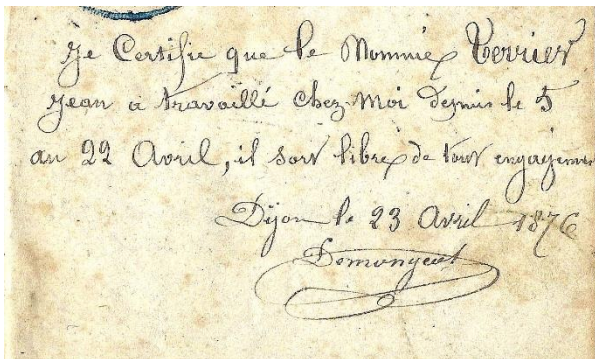 Je Certifie que le Nommé Terrier
Jean a travaillé chez Moi depuis le 5
au 22 Avril, il sort libre de tout engagement
Dijon le 23 Avril 1876
Demongeot